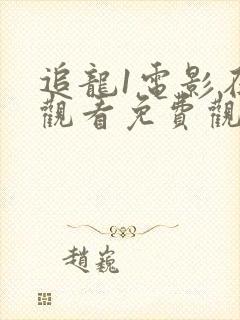 追龍1電影在
觀看免費觀
趙巍